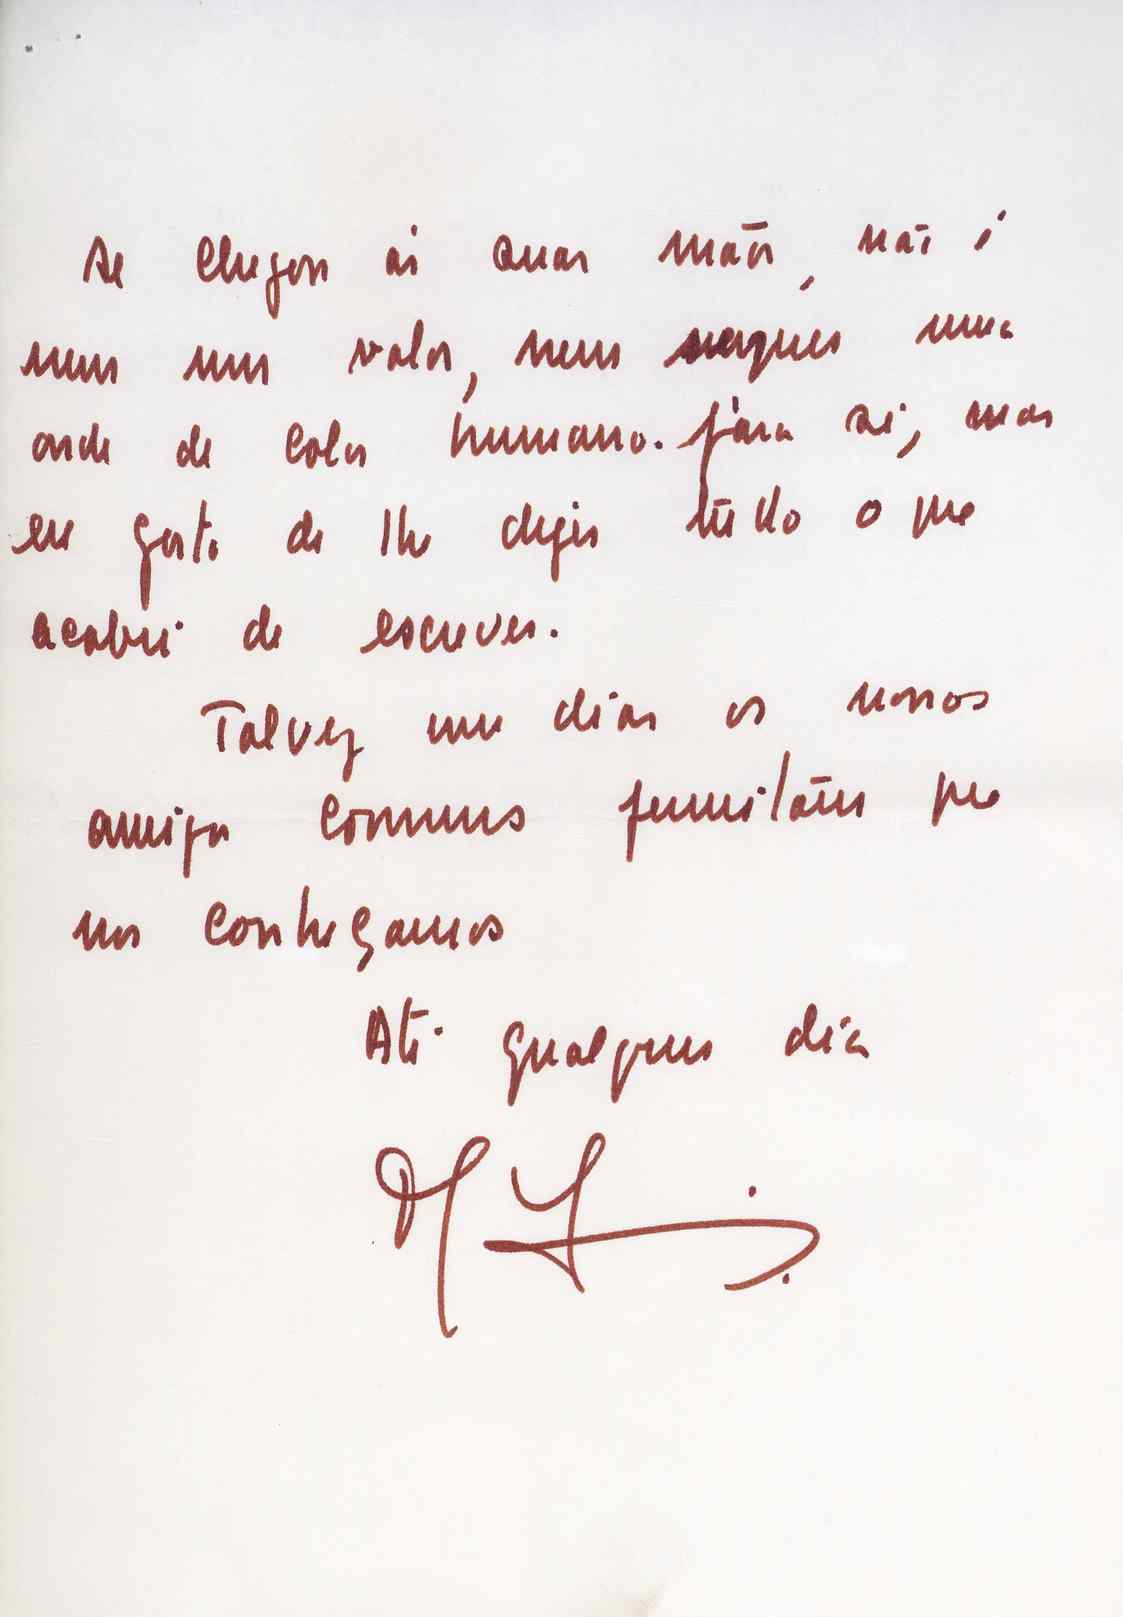 se chegou às suas mãos, não é
nem um valor, nem sequer uma
onda de calor humano. para si, mas
eu gosto de lhe dizer tudo o que
acabei de escrever.
Talvez um dia os nossos
amigos comuns permitam que
nos conheçamos
Até qualquer dia